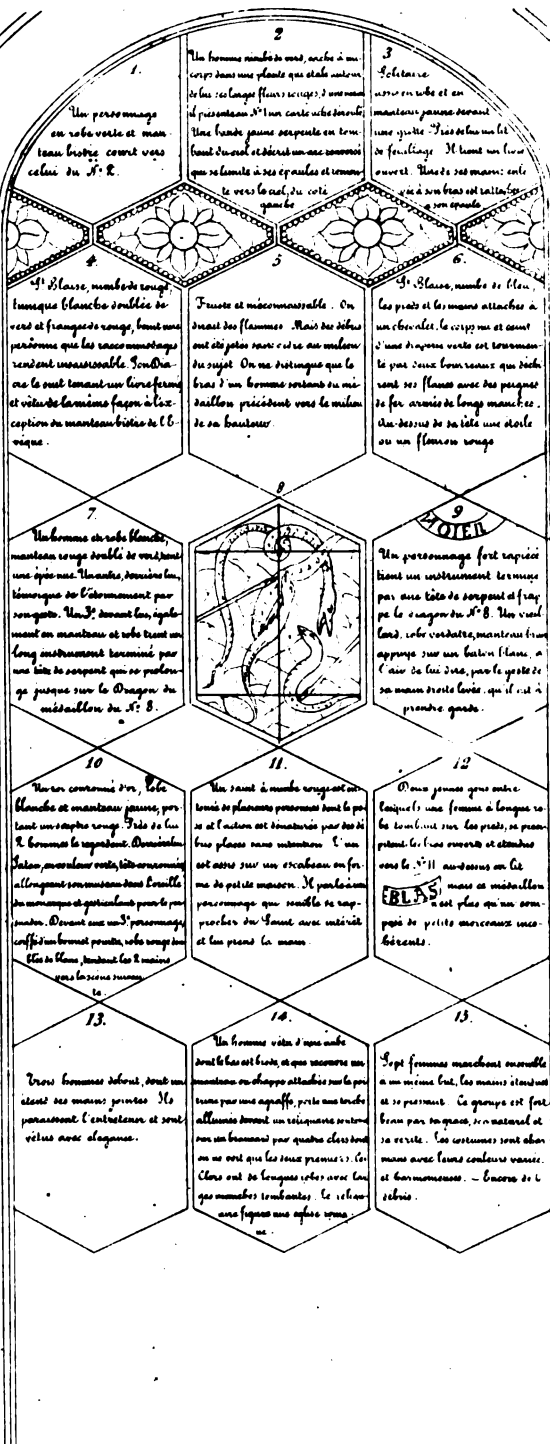 1.
Un personnage
en robe verte et man-
teau bistre court vers
celui du N° 2.
2
Un homme nimbé de vert, caché à mi-
corps dans une plante qui étale autour
de lui ses larges fleurs rouges, d'une main
il présente au N° 1 un cartouche déroulé
Une bande jaune serpente en tom-
bant du ciel et décrit un arc renversé
qui se limite à ses épaules et remon-
te vers le ciel, du coté
gauche
3
Solitaire
assis en robe et en
manteau jaune devant
une grotte Près de lui un lit
de feuillage Il tient un livre
ouvert. Une de ses mains enle-
vée à son bras est rattachée
à son épaule
4.
St Blaise, nimbe de rouge,
tunique blanche doublée de
vert et frangée de rouge, bénit une
personne que les raccommodages
rendent insaisissable. Son Dia-
cre le suit tenant un livre fermé
et vêtu de la même façon à l'ex-
ception du manteau bistre de l'É-
vêque.
5
Fruste et méconnaissable. On
dirait des flammes Mais des débris
ont été jetés sans ordre au milieu
du sujet On ne distingue que le
bras d'un homme sortant du mé-
daillon précédent vers le milieu
de sa hauteur.
6.
St Blaise, nimbe de bleu,
les pieds et les mains attachés à
un chevalet, le corps nu et ceint
d'une draperie verte est tourmen-
té par deux bourreaux qui déchi-
rent ses flancs avec des peignes
de fer armés de longs manches.
Au-dessus de sa tête une étoile
ou un fleuron rouge
7.
Un homme en robe blanche,
manteau rouge doublé de vert, tient
une épée nue. Un autre, derrière lui,
témoigne de l'étonnement par
son geste. Un 3e devant lui, égale-
ment en manteau et robe tient un
long instrument terminé par
une tête de serpent qui se prolon-
ge jusque sur le Dragon du
médaillon du N° 8.
8
9
MOIEN
Un personnage fort rapiécé
tient un instrument terminé
par une tête de serpent et frap-
pe le dragon du N° 8. Un vieil-
lard, robe verdâtre, manteau brun
appuyé sur un bâton blanc, a
l'air de lui dire, par le geste de
sa main droite levée, qu'il est à
prendre garde.
10
Un roi couronné d'or, robe
blanche et manteau jaune, por-
tant un sceptre rouge. Près de lui
2 hommes le regardent. Derrière lui
Satan, en couleur verte, tête couronnée
allongeant son museau dans l'oreille
du monarque et gesticulant pour le per-
suader. Devant eux un 3e personnage,
coiffé d'un bonnet pointu, robe rouge dou-
blée de blanc, tendent les 2 mains
vers la scène suivan-
te.
11.
Un saint à nimbe rouge est en-
touré de plusieurs personnes dont la po-
se et l'action est dénaturée par des dé-
bris placés sans intention L'un
est assis sur un escabeau en for-
me de petite maison. Il parle à un
personnage qui semble se rap-
procher du Saint avec intérêt
et lui prend la main.
12
Deux jeunes gens entre
lesquels une femme à longue ro-
be tombant sur les pieds, se préci-
pitent les bras ouverts et étendus
vers le N° 11 au-dessus on lit
BLAS, mais ce médaillon
n'est plus qu'un com-
posé de petits morceaux inco-
hérents.
13.
Trois hommes debout, dont un
étend ses mains jointes Ils
paraissent l'entretenir et sont
vêtus avec élégance.
14.
Un homme vêtu d'une aube
dont le bas est brodé, et que recouvre un
manteau ou chappe attachée sur la poi-
trine par une agraffe, porte une torche
allumée devant un reliquaire soutenu
sur un brancard par quatre clercs dont
on ne voit que les deux premiers. Les
Clercs ont de longues robes avec lar-
ges manches tombantes. Le reliqu-
aire figure une église roma-
ne.
15.
Sept femmes marchent ensemble
à un même but, les mains étendues
et se pressant. Ce groupe est fort
beau par sa grace, son naturel et
sa vérité. Les costumes sont char-
mans avec leurs couleurs variées
et harmonieuses. – Encore des
débris.